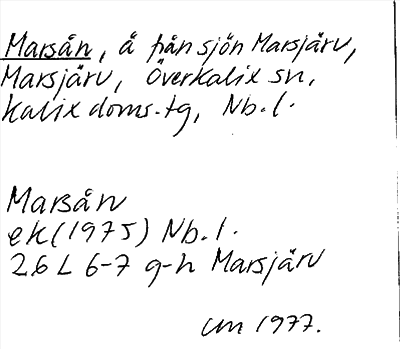 Marsån, å från sjön Marsjärv,
Marsjärv, Överkalix sn,
Kalix doms.tg, Nb.l.
Marsån
ek (1975) Nb.l.
26 L 6-7 g-h Marsjärv
cm 1977.